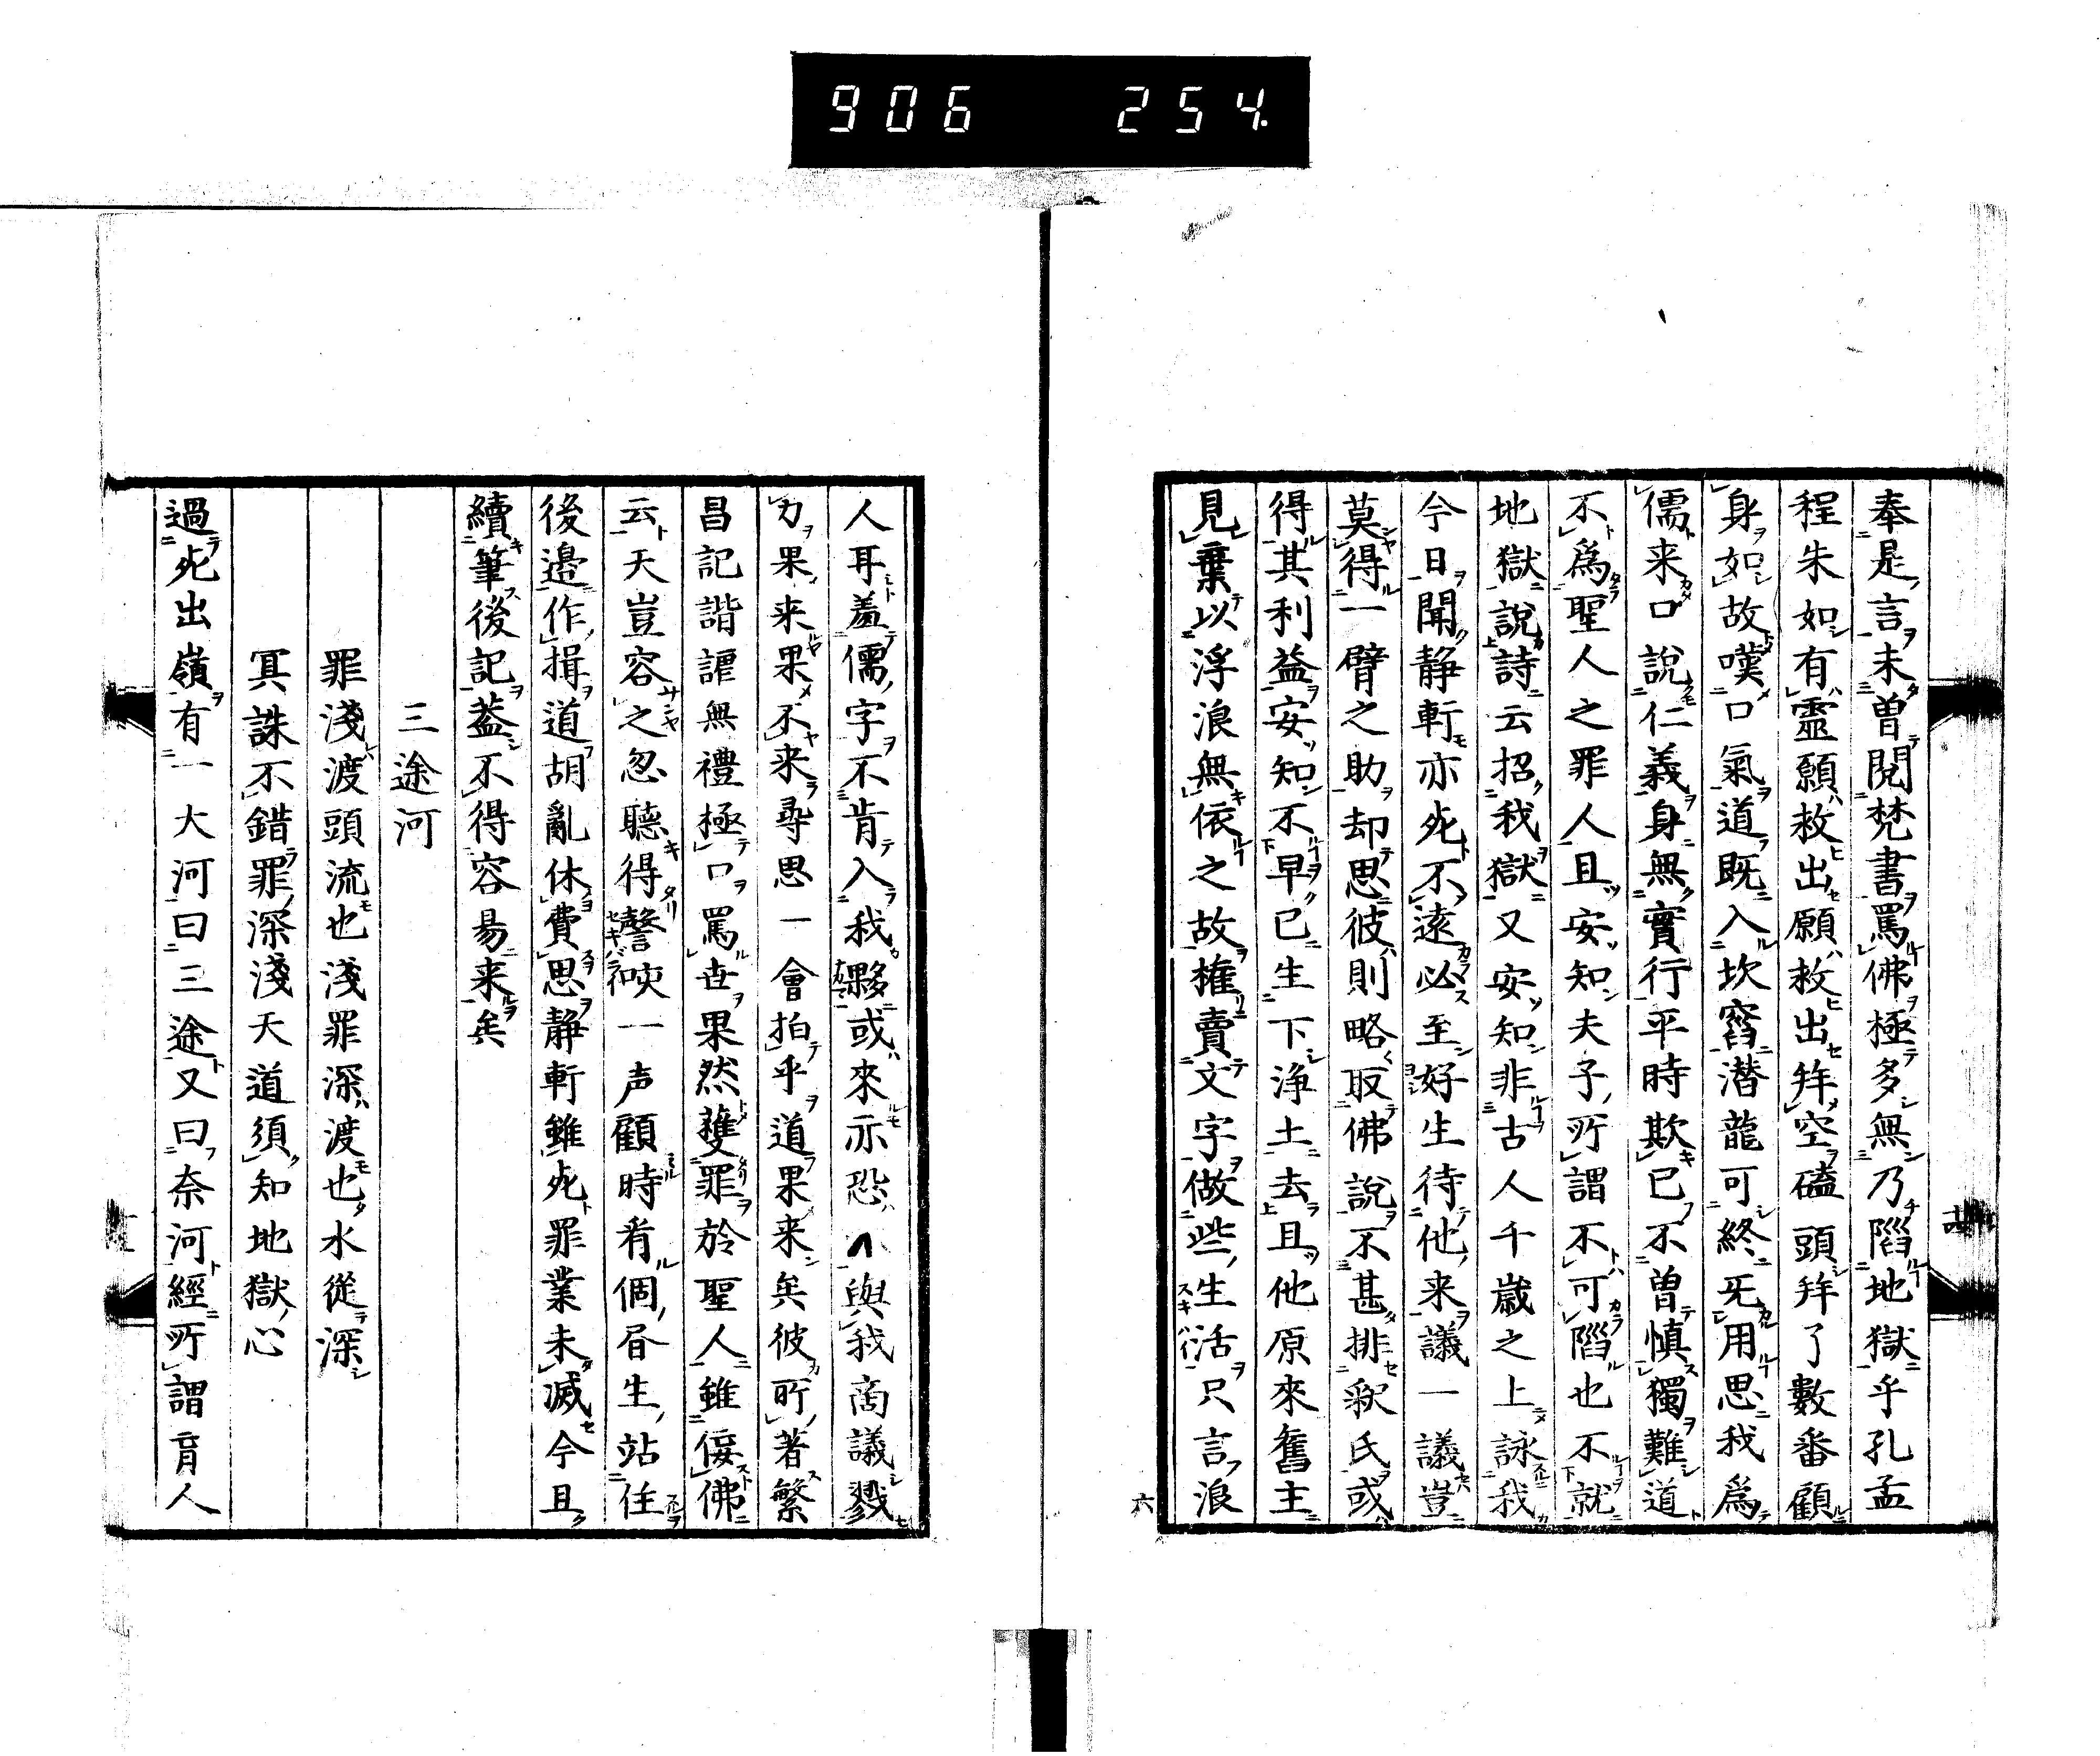 906 254
奉是言未曽閲梵書罵佛極多無乃陷地獄乎孔孟
程朱如有靈願救出願救出拜空磕頭拜了數番顧
身如故嘆口氣道既入坎窞潜龍可終死用思我爲
儒来口說仁義身無實行平時欺已不曽慎獨難道
不爲聖人之罪人且安知夫子所謂不可陷也不就
地獄說詩云招我獄又安知非古人千歳之上詠我
今日聞静軒亦死不遠必至好生待他来議一議豈
莫得一臂之助却思彼則略取佛說不甚排釈氏或
得其利益安知不早已生下浄土去且他原來舊主
見棄以浮浪無依之故権賣文字做些生活只言浪
六
人耳羞儒字不肯入我夥或來示恐不與我商議戮
力果来果不来尋思一會拍乎道果来矣彼所著繁
昌記諧謔無禮極口罵世果然獲罪於聖人雖佞佛
云天豈容之忽聴得謦咳一声顧時看個眉生站住
後邉作揖道胡亂休費思静軒雖死罪業未滅今且
續筆後記葢不得容易来矣
三途河
罪淺渡頭流也淺罪深渡也水從深
冥誅不錯罪深淺天道須知地獄心
過死出嶺有一大河曰三途又曰奈河經所謂盲人